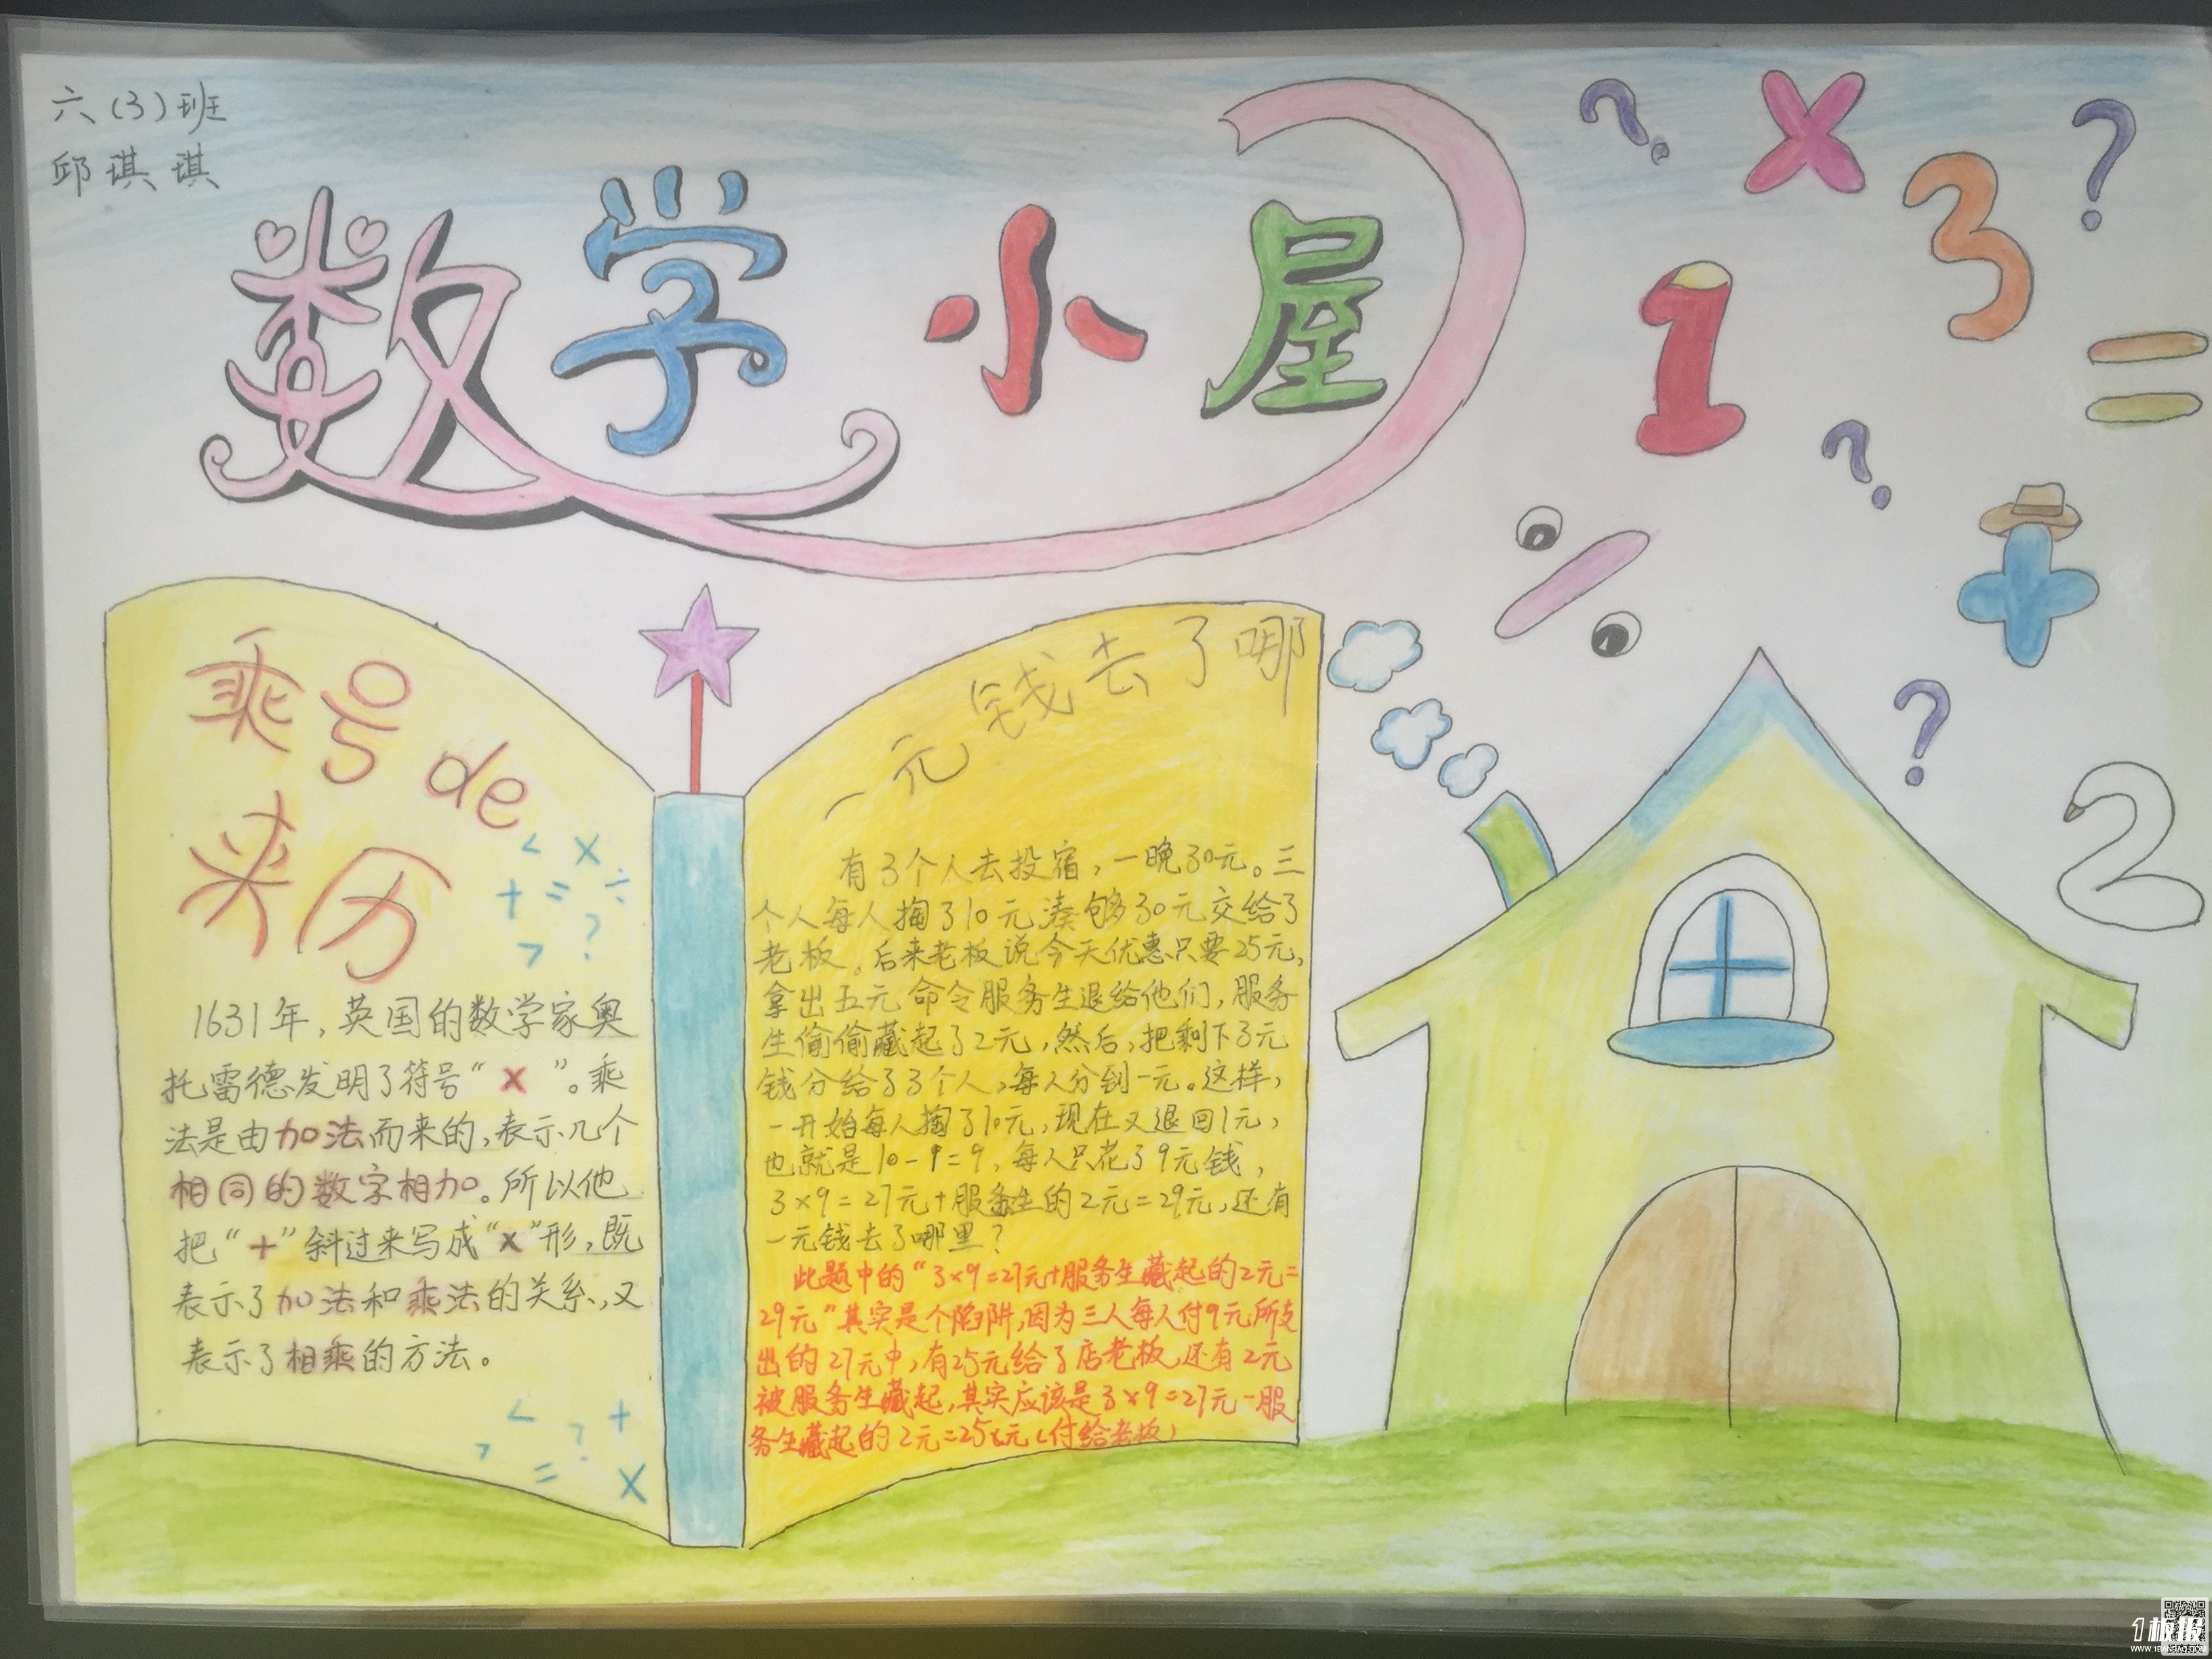 六(3)班
邱琪琪
数学小屋
乘号de
来历
1631年，英国的数学家奥
托雷德发明了符号“×”。乘
法是由加法而来的，表示几个
相同的数字相加。所以他
把“+”斜过来写成“×”形，既
表示了加法和乘法的关系，又
表示了相乘的方法。
< ×
+ = ÷
> ?
< +
> ?
= ×
一元钱去了哪
有3个人去投宿，一晚30元。三
个人每人掏了10元凑够30元交给了
老板。后来老板说今天优惠只要25元，
拿出五元命令服务生退给他们，服务
生偷偷藏起了2元，然后，把剩下3元
钱分给了3个人，每人分到一元。这样，
一开始每人掏了10元，现在又退回1元，
也就是10-9=9，每人只花了9元钱，
3×9=27元+服务生的2元=29元，还有
一元钱去了哪里？
此题中的“3×9=27元+服务生藏起的2元=
29元”其实是个陷阱，因为三人每人付9元所支
出的27元中，有25元给了店老板，还有2元
被服务生藏起，其实应该是3×9=27元-服
务生藏起的2元=25元（付给老板）
? × ?
3
1 =
?
% +
?
2
1板报
WWW.1BANBAO.COM